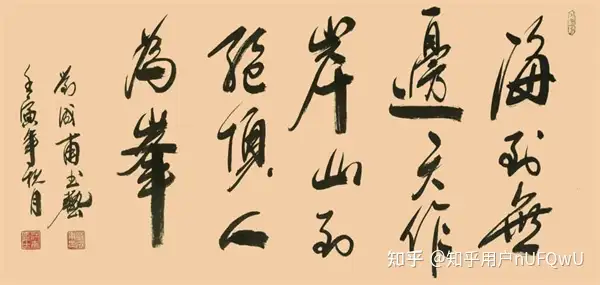 海到無
邊天作
岸山到
絕頂人
為峯
成甫書藝
壬寅年秋月
知乎 @知乎用户nUFQwU